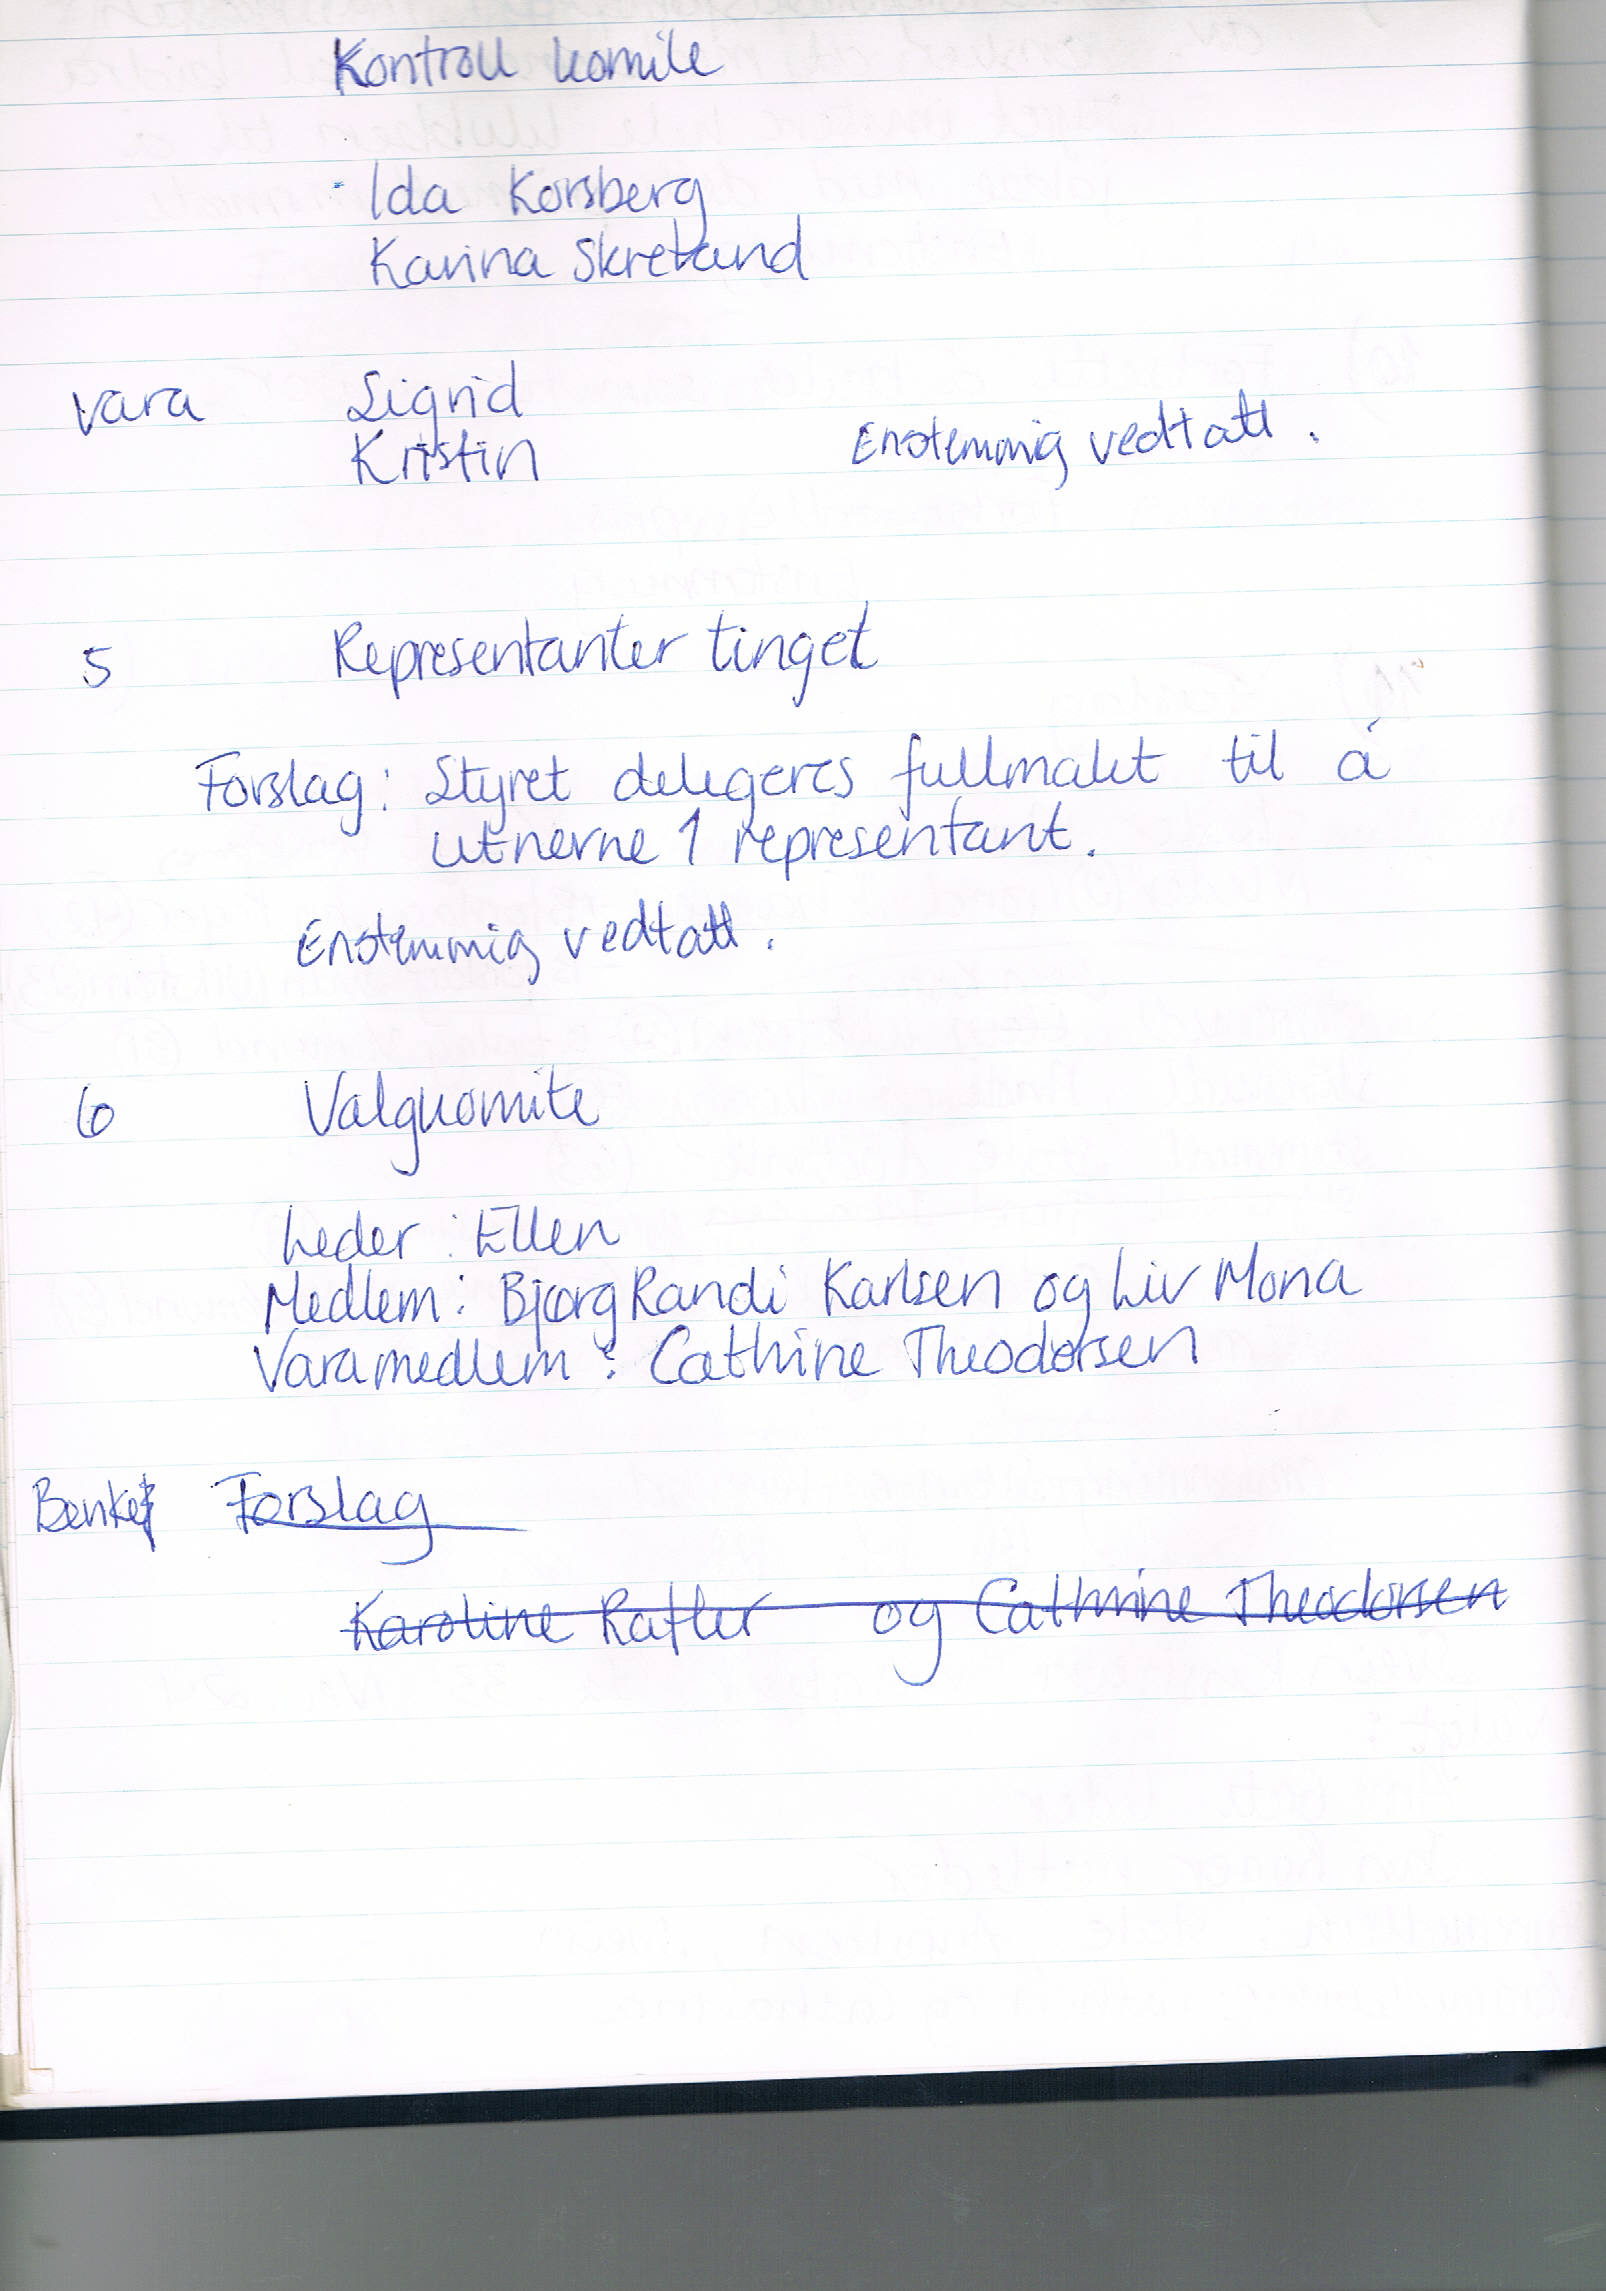 Kontroll komite
Ida Korsberg
Karina Skreland
vara Sigrid
Kristin Enstemmig vedtatt.
5 Representanter tinget
Forslag: Styret delegeres fullmakt til å
utnevne 1 representant.
Enstemmig vedtatt.
6 Valgkomite
Leder: Ellen
Medlem: Bjørg Randi Karlsen og Liv Mona
Varamedlem: Cathrine Theodorsen
Benke Forslag
Karoline og Cathrine Theodorsen